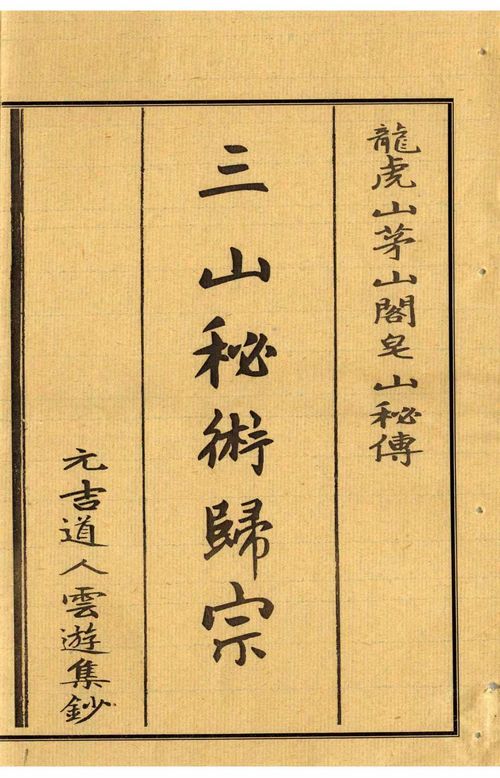 龍虎山茅山閣皂山秘傳
三山秘術歸宗
元吉道人雲遊集鈔